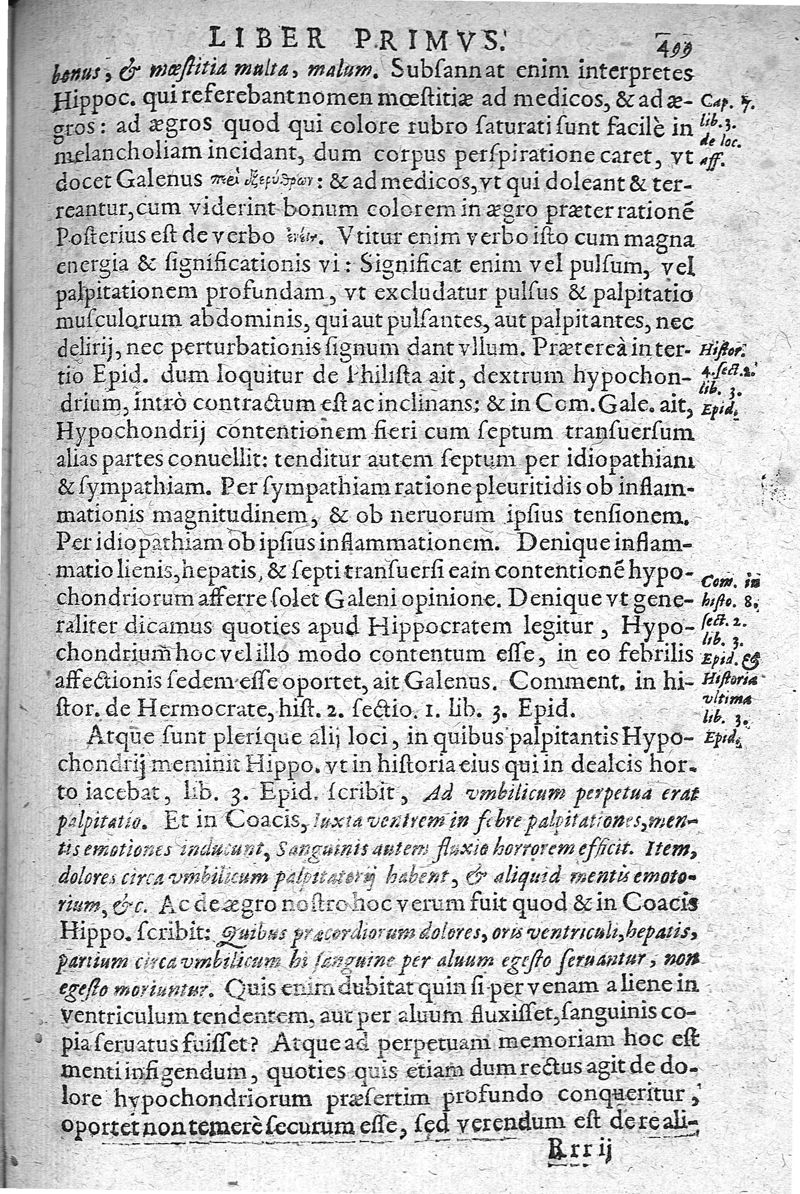 LIBER PRIMVS. 499
bonus, & mœstitia multa, malum. Subsannat enim interpretes
Hippoc. qui referebant nomen mœstitiæ ad medicos, & ad æ-
gros: ad ægros quod qui colore rubro saturati sunt facilè in
melancholiam incidant, dum corpus perspiratione caret, vt
docet Galenus : & ad medicos, vt qui doleant & ter-
reantur, cum viderint bonum colorem in ægro præter rationē
Posterius est de verbo . Vtitur enim verbo isto cum magna
energia & significationis vi: Significat enim vel pulsum, vel
palpitationem profundam, vt excludatur pulsus & palpitatio
musculorum abdominis, qui aut pulsantes, aut palpitantes, nec
delirij, nec perturbationis signum dant vllum. Prætereà in ter-
tio Epid. dum loquitur de Philista ait, dextrum hypochon-
drium, intrò contractum est ac inclinans: & in Com. Gale. ait,
Hypochondrij contentionem fieri cum septum transuersum
alias partes conuellit: tenditur autem septum per idiopathiam
& sympathiam. Per sympathiam ratione pleuritidis ob inflam-
mationis magnitudinem, & ob neruorum ipsius tensionem.
Per idiopathiam ob ipsius inflammationem. Denique inflam-
matio lienis, hepatis, & septi transuersi eain contentionē hypo-
chondriorum afferre solet Galeni opinione. Denique vt gene-
raliter dicamus quoties apud Hippocratem legitur, Hypo-
chondrium hoc vel illo modo contentum esse, in eo febrilis
affectionis sedem esse oportet, ait Galenus. Comment. in hi-
stor. de Hermocrate, hist. 2. sectio. 1. lib. 3. Epid.
Atque sunt plerique alij loci, in quibus palpitantis Hypo-
chondrij meminit Hippo. vt in historia eius qui in dealcis hor-
to iacebat, lib. 3. Epid. scribit, Ad vmbilicum perpetua erat
palpitatio. Et in Coacis, Iuxta ventrem in febre palpitationes, men-
tis emotiones inducunt, Sanguinis autem fluxio horrorem efficit. Item,
dolores circa vmbilicum palpitatorij habent, & aliquid mentis emoto-
rium, &c. Ac de ægro nostro hoc verum fuit quod & in Coacis
Hippo. scribit: Quibus præcordiorum dolores, oris ventriculi, hepatis,
partium circa vmbilicum hi sanguine per aluum egesto seruantur, non
egesto moriuntur. Quis enim dubitat quin si per venam a liene in
ventriculum tendentem, aut per aluum fluxisset, sanguinis co-
pia seruatus fuisset? Atque ad perpetuam memoriam hoc est
menti infigendum, quoties quis etiam dum rectus agit de do-
lore hypochondriorum præsertim profundo conqueritur,
oportet non temerè securum esse, sed verendum est de re ali-
Rrr ij
Cap. 7.
lib. 3.
de loc.
aff.
Histor.
4. sect. 2.
lib. 3.
Epid.
Com. in
histo. 8.
sect. 2.
lib. 3.
Epid. &
Historia
vltima
lib. 3.
Epid.